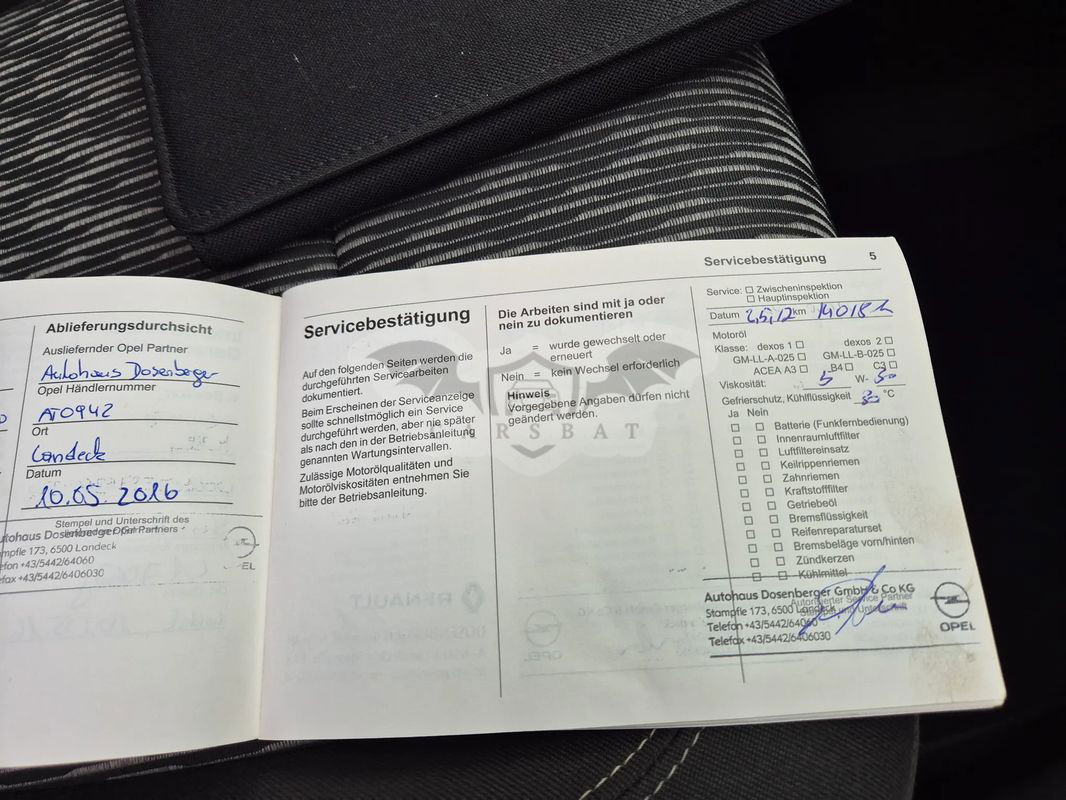 Ablieferungsdurchsicht
Ausliefernder Opel Partner
Autohaus Dosenberger
Opel Händlernummer
AT0942
Ort
Landeck
Datum
10.05.2016
Stempel und Unterschrift des
Opel Partners
utohaus Dosenberger
mpfle 173, 6500 Landeck
efon +43/5442/64060
efax +43/5442/6406030
Servicebestätigung
Auf den folgenden Seiten werden die
durchgeführten Servicearbeiten
dokumentiert.
Beim Erscheinen der Serviceanzeige
sollte schnellstmöglich ein Service
durchgeführt werden, aber nie später
als nach den in der Betriebsanleitung
genannten Wartungsintervallen.
Zulässige Motorölqualitäten und
Motorölviskositäten entnehmen Sie
bitte der Betriebsanleitung.
Die Arbeiten sind mit ja oder
nein zu dokumentieren
Ja = wurde gewechselt oder
erneuert
Nein = kein Wechsel erforderlich
Hinweis
Vorgegebene Angaben dürfen nicht
geändert werden.
CARSBAT
Servicebestätigung 5
Service: Zwischeninspektion
Hauptinspektion
Datum 2,5,17 km 14018
Motoröl
Klasse: dexos 1 dexos 2
GM-LL-A-025 GM-LL-B-025
ACEA A3 B4 C3
Viskosität: 5 W-30
Gefrierschutz, Kühlflüssigkeit °C
Ja Nein
Batterie (Funkfernbedienung)
Innenraumluftfilter
Luftfiltereinsatz
Keilrippenriemen
Zahnriemen
Kraftstofffilter
Getriebeöl
Bremsflüssigkeit
Reifenreparaturset
Bremsbeläge vorn/hinten
Zündkerzen
Kühlmittel
Autorisierter Service Partner
Stempel und Unterschrift
Autohaus Dosenberger GmbH & Co KG
Stampfle 173, 6500 Landeck
Telefon +43/5442/64060
Telefax +43/5442/6406030
OPEL